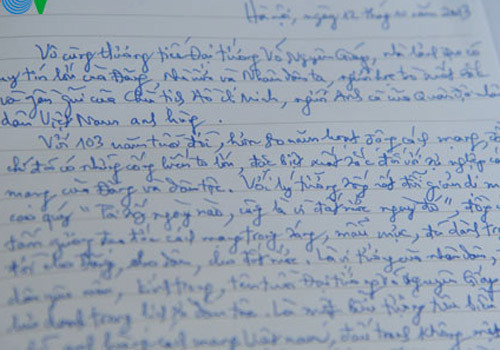 Hà nội, ngày 12 tháng 10 năm 2013
Vô cùng thương tiếc Đại tướng Võ Nguyên Giáp, nhà lãnh đạo có
uy tín lớn của Đảng, Nhà nước và Nhân dân ta, người học trò xuất sắc
và gần gũi của Chủ tịch Hồ Chí Minh, người Anh cả của Quân đội nhân
dân Việt Nam anh hùng.
Với 103 năm tuổi đời, hơn 80 năm hoạt động cách mạng, đồng
chí đã có những cống hiến to lớn, đặc biệt xuất sắc đối với sự nghiệp cách
mạng của Đảng và dân tộc. Với lý tưởng sống rất đỗi giản dị mà
cao quý "Tôi sống ngày nào, cũng là vì đất nước ngày đó", đồng chí
tấm gương đạo đức cách mạng trong sáng, mẫu mực, đã dành trọn
đời cho Đảng, cho dân, cho đất nước. Là vị tướng của nhân dân,
dân yêu mến, kính trọng, tên tuổi Đại tướng Võ Nguyên Giáp
lưu danh trong lịch sử dân tộc. Là một
anh hùng cách mạng Việt Nam, đấu tranh không